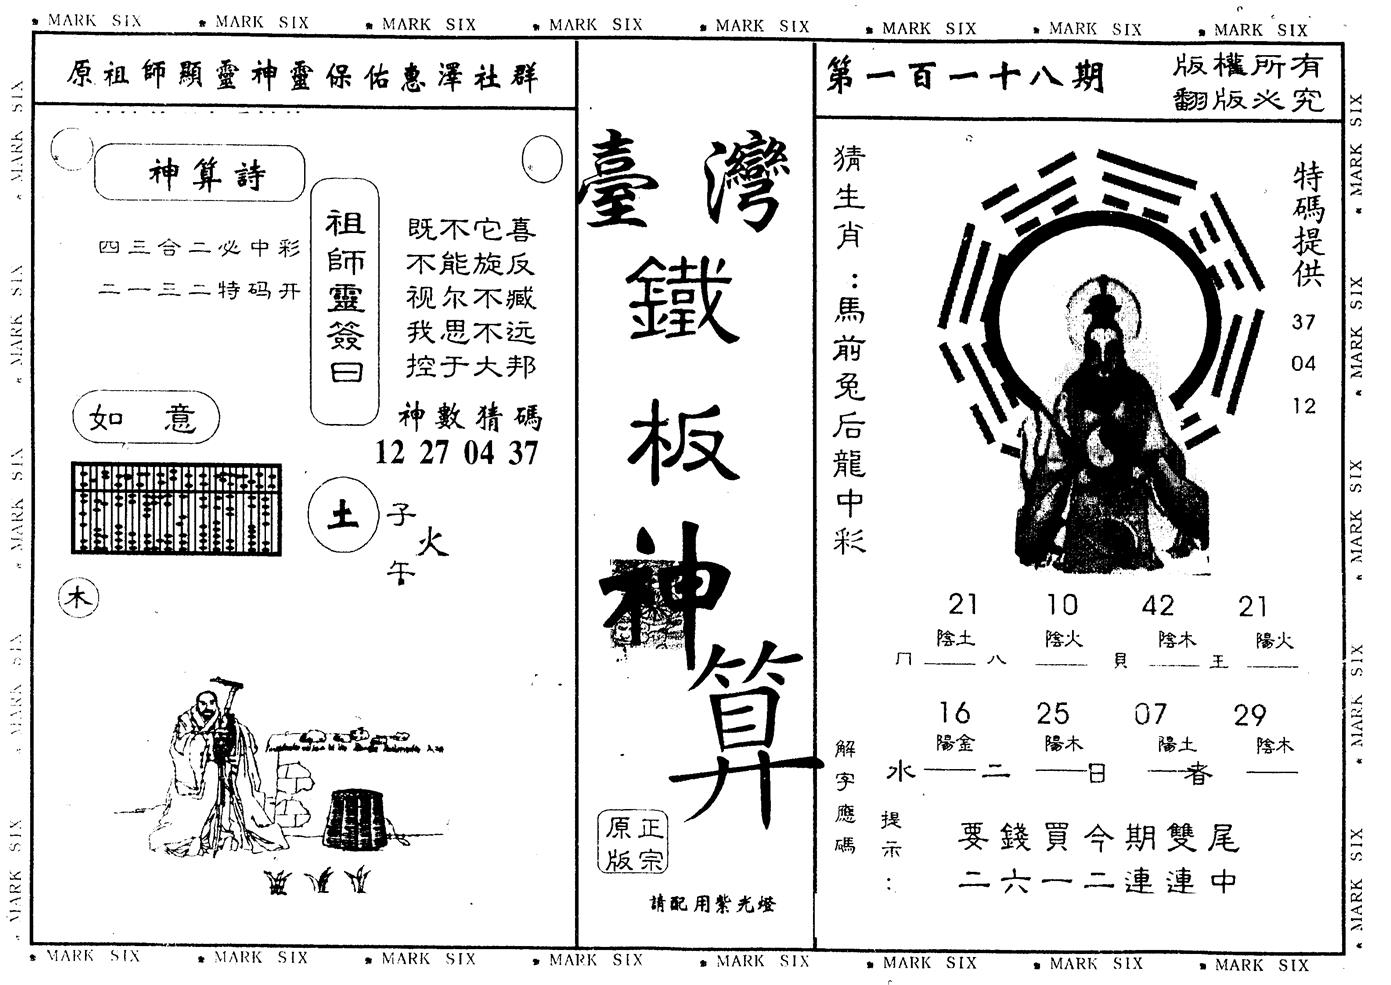 MARK SIX MARK SIX MARK SIX MARK SIX MARK SIX MARK SIX MARK SIX MARK SIX
原祖師顯靈神靈保佑惠澤社群
神算詩
四三合二必中彩
二一三二特码开
祖師靈簽曰
既不它喜
不能旋反
视尔不臧
我思不远
控于大邦
神數猜碼
12 27 04 37
如意
土
子
火
午
木
臺灣
鐵
板
神
算
正宗
原版
請配用紫光燈
第一百一十八期
版權所有
翻版必究
猜生肖:馬前兔后龍中彩
特碼提供
37
04
12
21 10 42 21
陰土 陰火 陰木 陽火
冂 八 貝 王
16 25 07 29
陽金 陽木 陽土 陰木
水 二 日 者
解字應碼
提示:
要錢買今期雙尾
二六一二連連中
MARK SIX MARK SIX MARK SIX MARK SIX MARK SIX MARK SIX MARK SIX MARK SIX
MARK SIX MARK SIX MARK SIX MARK SIX MARK SIX
MARK SIX MARK SIX MARK SIX MARK SIX MARK SIX